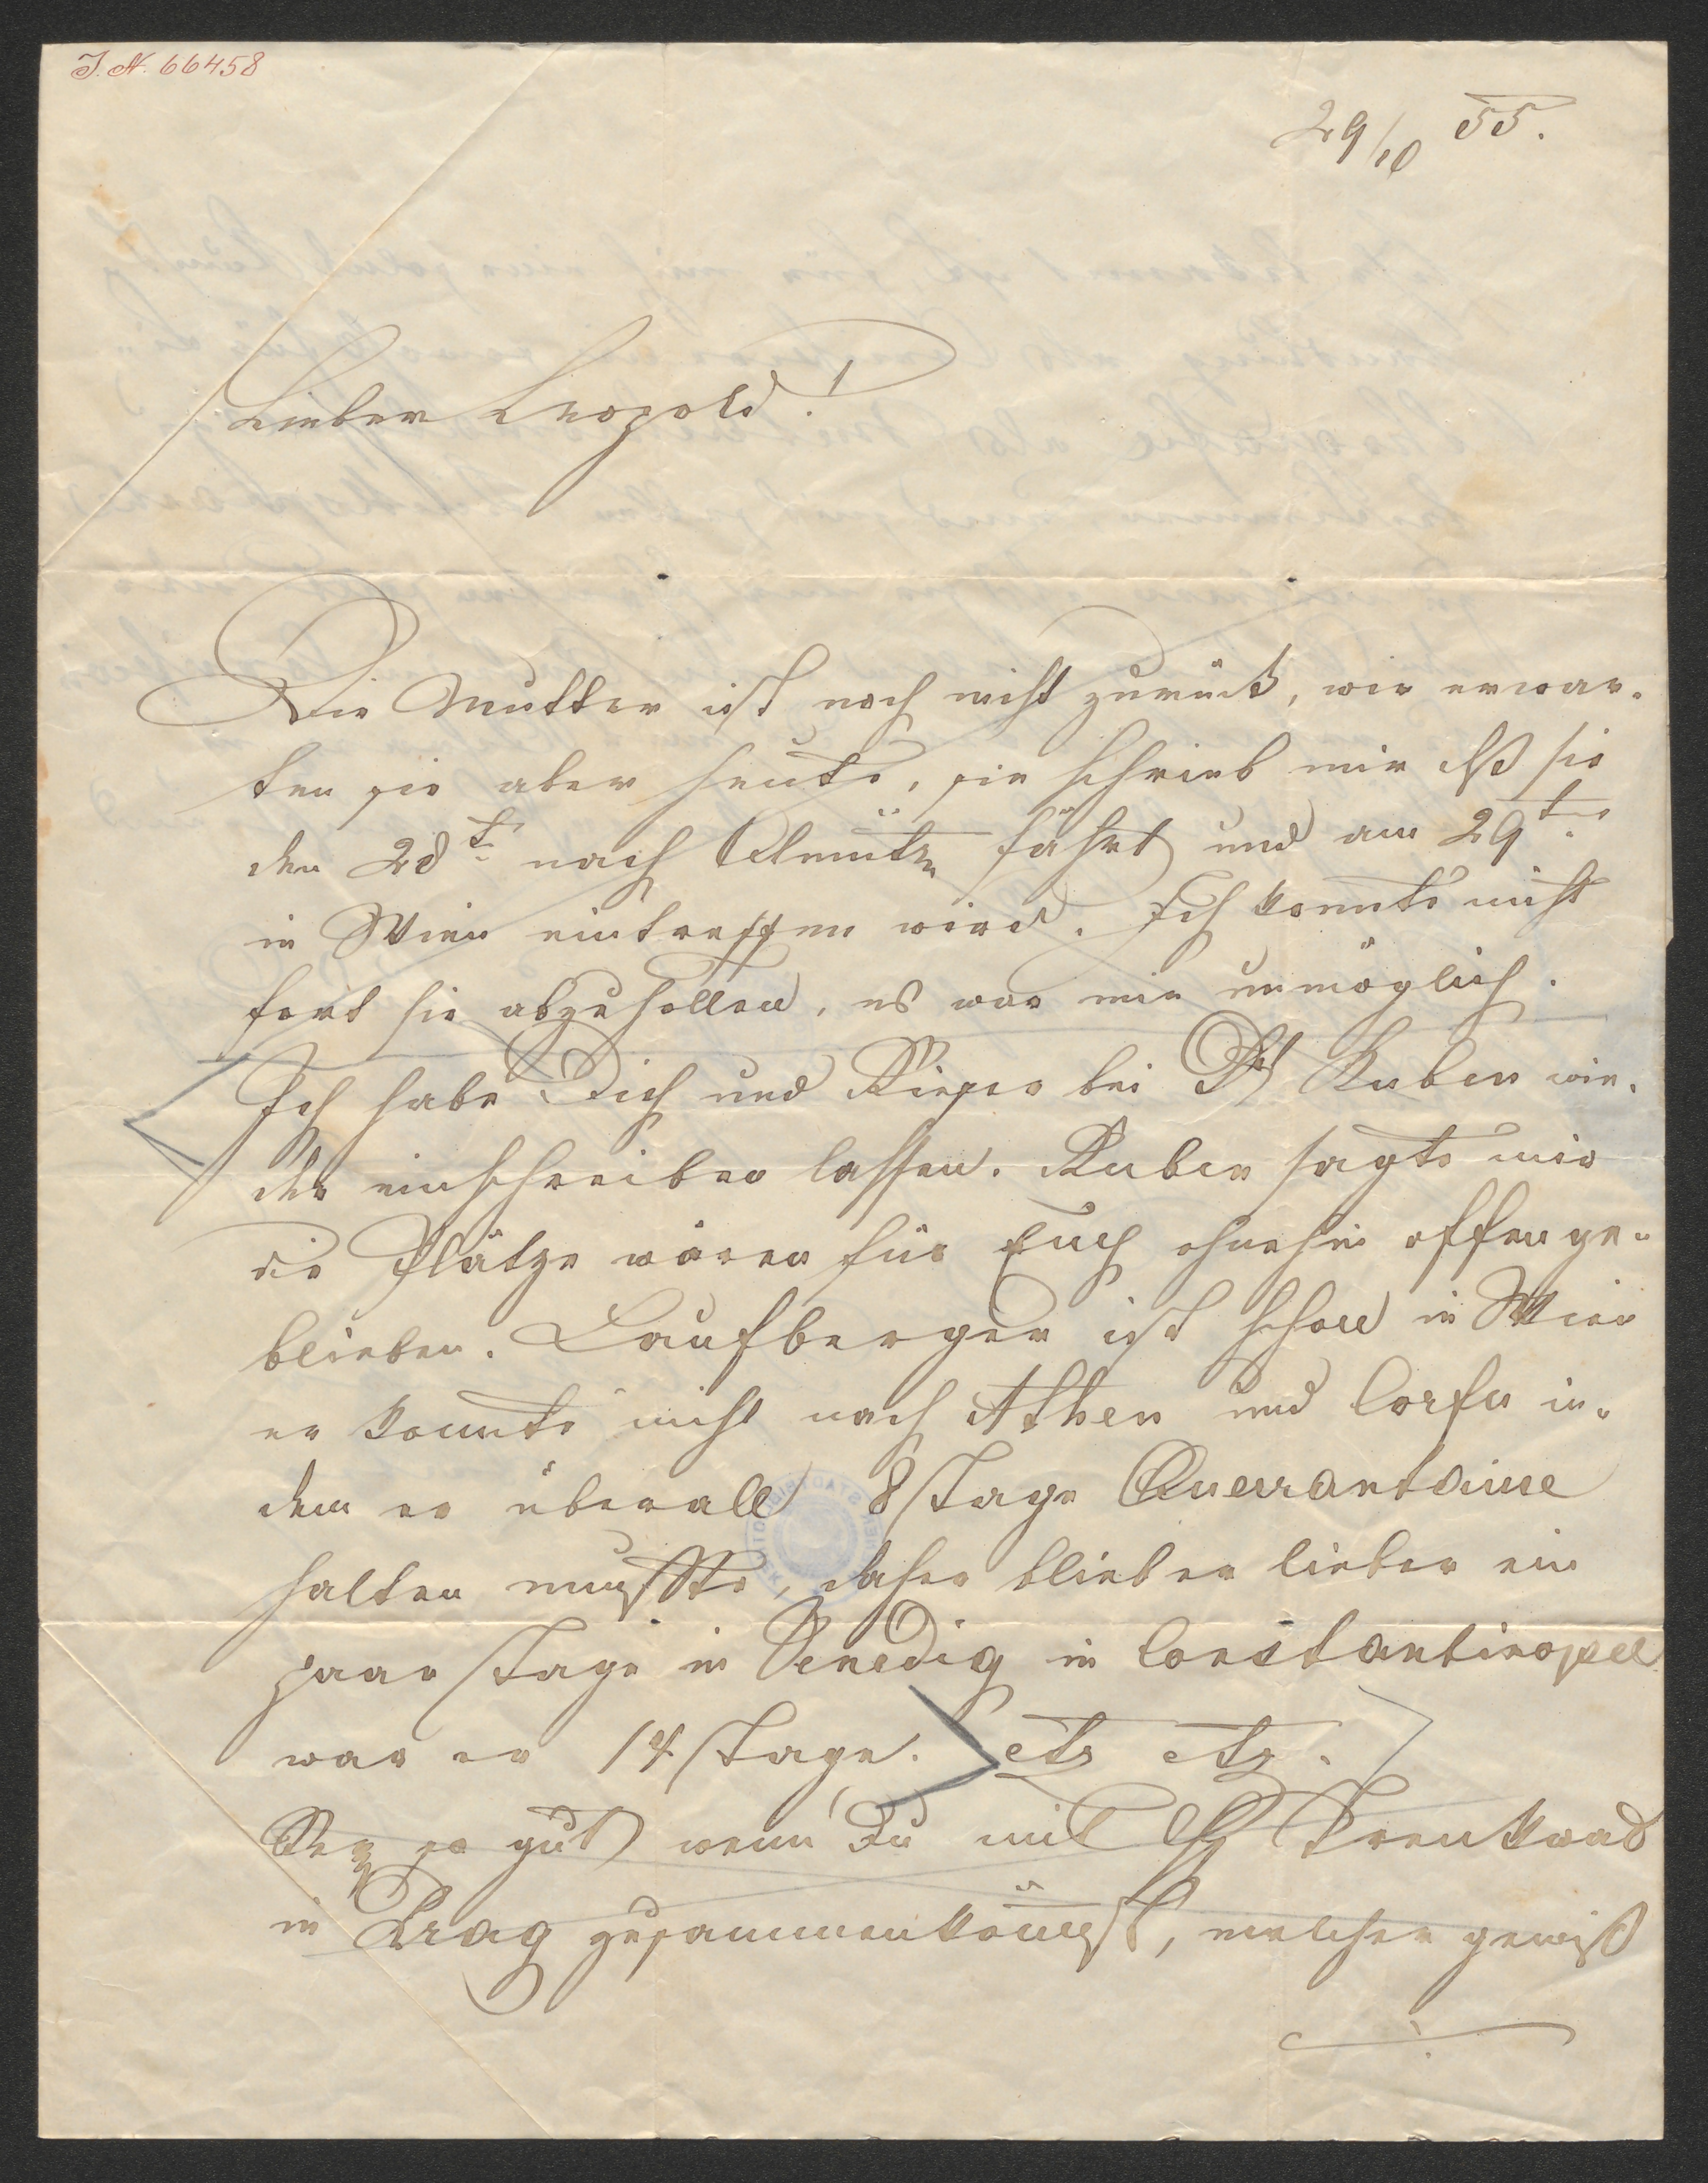 I. N. 66458
29/10 55.
Lieber Leopold!
Die Mutter ist noch nicht zurück, wir erwar-
ten sie aber heute, sie schrieb mir daß sie
den 28t. nach Olmütz fährt und am 29te.
in Wien eintreffen wird. Ich konnte nicht
fort sie abzuhollen, es war mir unmöglich.
Ich habe Dich und Rieger bei Ruben wie-
der einschreiben lassen. Ruben sagte mir
die Plätze wären für Euch ohnehin offen ge-
blieben. Laufberger ist schon in Wien
er konnte nicht nach Athen und Corfu in-
dem er überall 8 Tage Querrantaine
halten mußte, daher blieb er lieber ein
paar Tage in Venedig in Constantinopel
war er 14 Tage. etz etz.
Sey so gut wenn Du mit H Trenkwald
in Prag zusammenkömmst, welcher gewiß